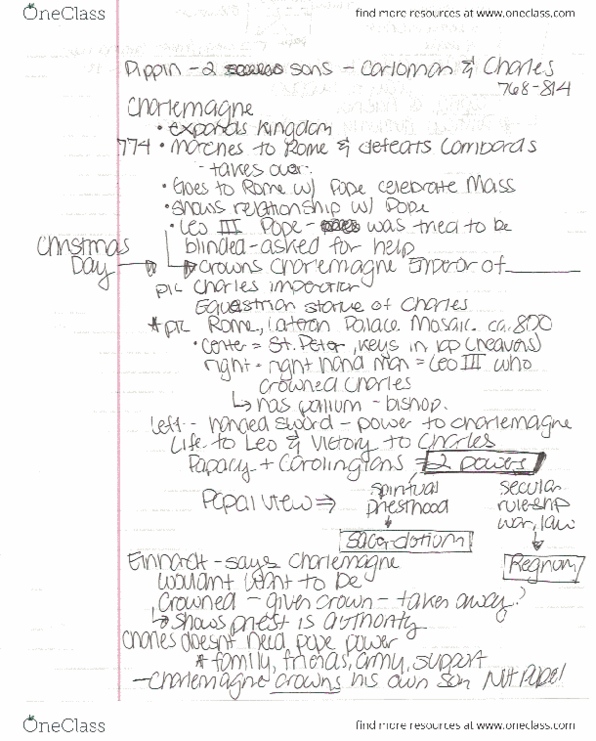 OneClass
find more resources at www.oneclass.com
Pippin - 2 sons - Carloman & Charles
768-814
Charlemagne
• expands kingdom
774 • Marches to Rome & defeats Lombards
- takes over.
• Goes to Rome w/ Pope celebrate Mass
• shows relationship w/ Pope
• Leo III Pope - was tried to be
blinded - asked for help
Christmas
Day
crowns Charlemagne Emperor of
pic Charles imperator
Equestrian statue of Charles
* pic Rome, Lateran Palace Mosaic. ca. 800
• center = St. Peter, keys in lap (heavens)
right - right hand man = Leo III who
crowned Charles
↳ has pallium - bishop.
Left - handed sword - power to charlemagne
Life to Leo & Victory to Charles
Papacy + Carolingians = 2 powers
Papal view ⇒
spiritual
priesthood
sacerdotium
secular
rulership
war, law
Regnum
Einhardt - says Charlemagne
wouldnt want to be
crowned - given crown - takes away?
↳ shows priest is authority
Charles doesnt need pope power
* family, friends, army, support
- Charlemagne crowns his own son Not Papel
OneClass
find more resources at www.oneclass.com